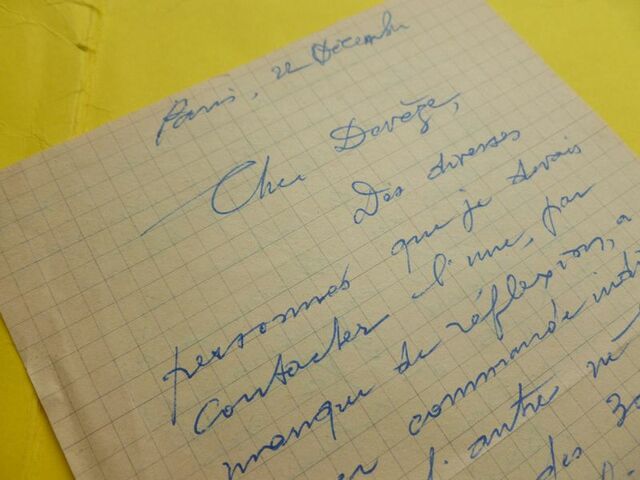 Paris, 22 Décembre
Cher Devèze,
Des diverses
personnes que je devais
contacter l'une, par
manque de réflexion, a
commandé
l'autre
des